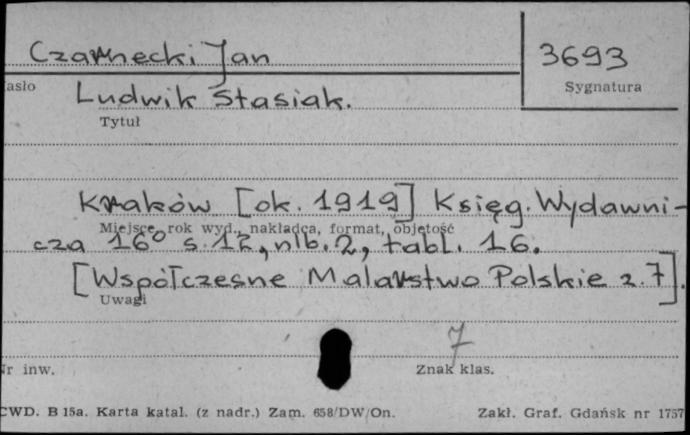 Czarnecki Jan
3693
asło
Sygnatura
Ludwik Stasiak.
Tytuł
Kraków [ok. 1919] Księg. Wydawni-
Miejsce, rok wyd., nakładca, format, objętość
cza 16° s. 12, nlb. 2, tabl. 16.
[Współczesne Malarstwo Polskie z. 7].
Uwagi
7
Nr inw.
Znak klas.
CWD. B 15a. Karta katal. (z nadr.) Zam. 658/DW/On.
Zakł. Graf. Gdańsk nr 1757